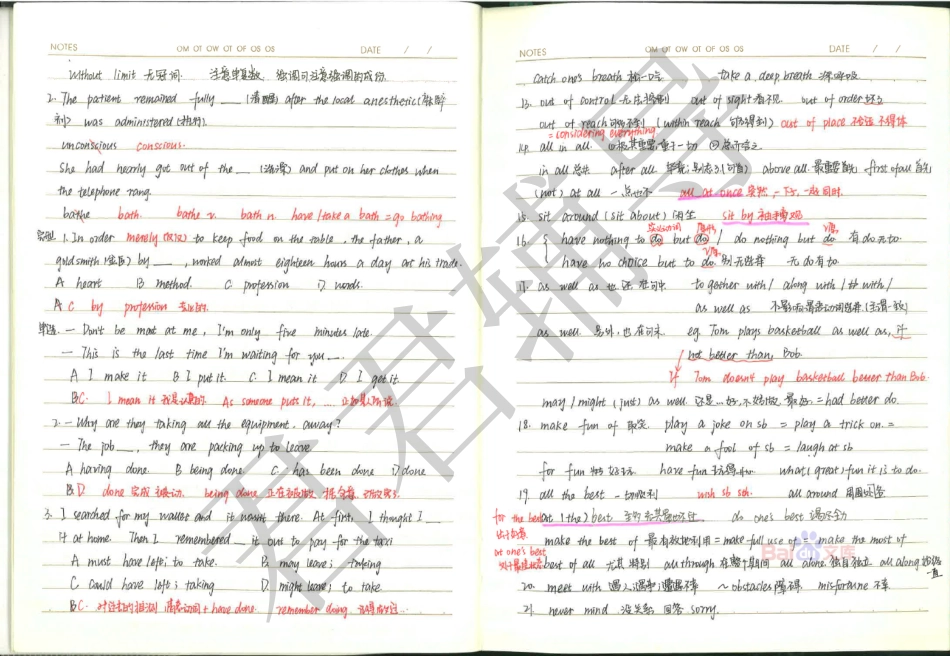 NOTES OM OT OW OT OF OS OS DATE / /
Without limit 无冠词. 注意单复数, 强调句注意强调的成份.
2. The patient remained fully ___ (清醒) after the local anesthetic(麻醉
剂) was administered(执行).
unconscious conscious.
She had nearly got out of the ___ (浴缸) and put on her clothes when
the telephone rang.
bathe bath. bathe v. bath n. have/take a bath = go bathing
1. In order merely(仅仅) to keep food on the table, the father, a
goldsmith(金匠) by ___, worked almost eighteen hours a day at his trade.
A heart B method. C profession D words.
A C by profession 专业的.
单选. — Don't be mad at me, I'm only five minutes late.
— This is the last time I'm waiting for you ___.
A I make it B I put it. C. I mean it D I get it.
BC. I mean it 我是认真的. As someone puts it, ... 正如某人所说.
2. — Why are they taking all the equipment away?
— The job ___, they are packing up to leave
A having done. B being done C has been done D done
B D done 完成 被动. being done 正在被做
3. I searched for my wallet and it wasn't there. At first I thought I ___
it at home. Then I remembered ___ it out to pay for the taxi
A must have left; to take. B may leave; taking
C could have left; taking D. might leave; to take
BC. 对过去的推测 情态动词 + have done. remember doing 记得做过
NOTES OM OT OW OT OF OS OS DATE / /
catch one's breath take a deep breath 深呼吸
13. out of control 无法控制 out of sight 看不见 out of order 坏了
out of reach 可望不到 (within reach 可够得到) out of place 不恰当 不得体
= considering everything
14. all in all. 总而言之
in all 总共 after all 毕竟; 别忘了(句首) above all 最重要的 first of all 首先
(not) at all 一点也不 all at once 突然, 一下子, 一起同时.
15. sit around (sit about) 闲坐 sit by 袖手旁观
16. { have nothing to do but do / do nothing but do
have no choice but to do 别无选择
17. as well as 也 还 在句中 together with / along with / # with /
as well as
as well 另外, 也 在句末 eg. Tom plays basketball as well as, if
not better than, Bob.
If Tom doesn't play basketball better than Bob.
may / might (just) as well 还是...好, 不妨做 最好 = had better do.
18. make fun of 取笑 play a joke on sb = play a trick on =
make a fool of sb = laugh at sb
for fun have fun what (great) fun it is to do.
19. all the best 一切顺利 wish sb sth. all around 周围
for the best at (the) best do one's best 竭尽全力
make the best of 最有效地利用 = make full use of = make the most of
at one's best
best of all 尤其 特别 all through 在整个期间 all alone 独自 all along 一直
20. meet with ~ obstacles 障碍 misfortune 不幸
21. never mind 没关系 回答 sorry.
君君辅导
Baidu文库